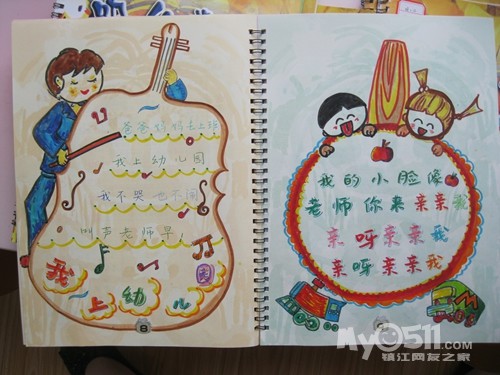 爸爸妈妈去上班
我上幼儿园
我不哭也不闹
叫声老师早!
我上幼儿园
8
我的小脸像
老师你来亲亲我
亲呀亲亲我
亲呀亲亲我
My0511.com
镇江网友之家